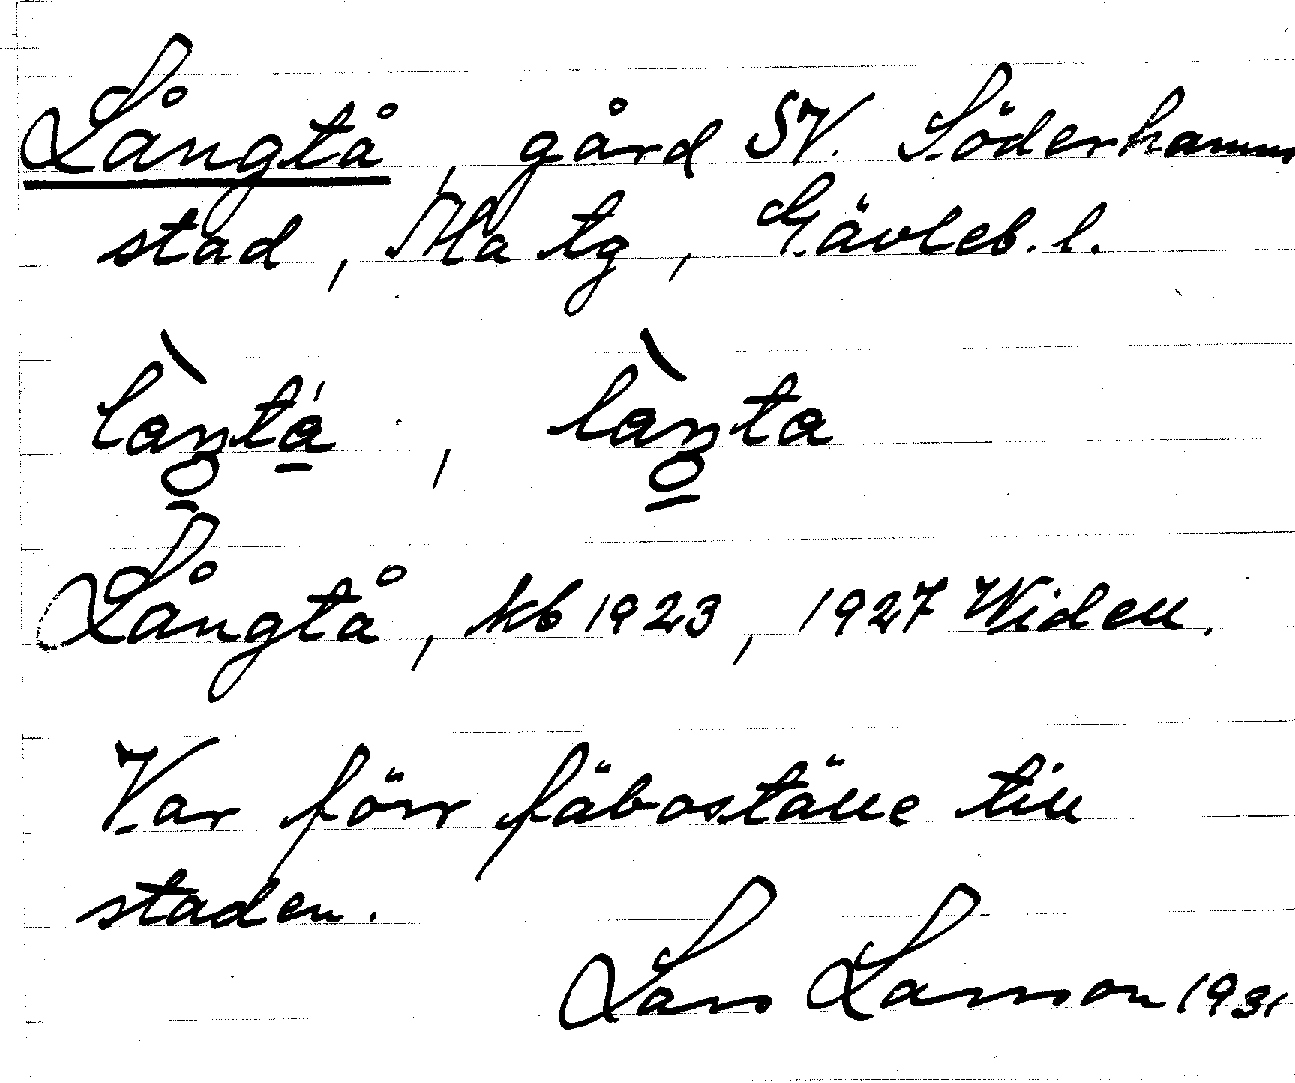 Långtå, gård SV. Söderhamns
stad, Ala tg, Gävleb. l.
Långtå, kb 1923, 1927 Widell.
Var förr fäboställe till
staden.
Lars Larsson 1931